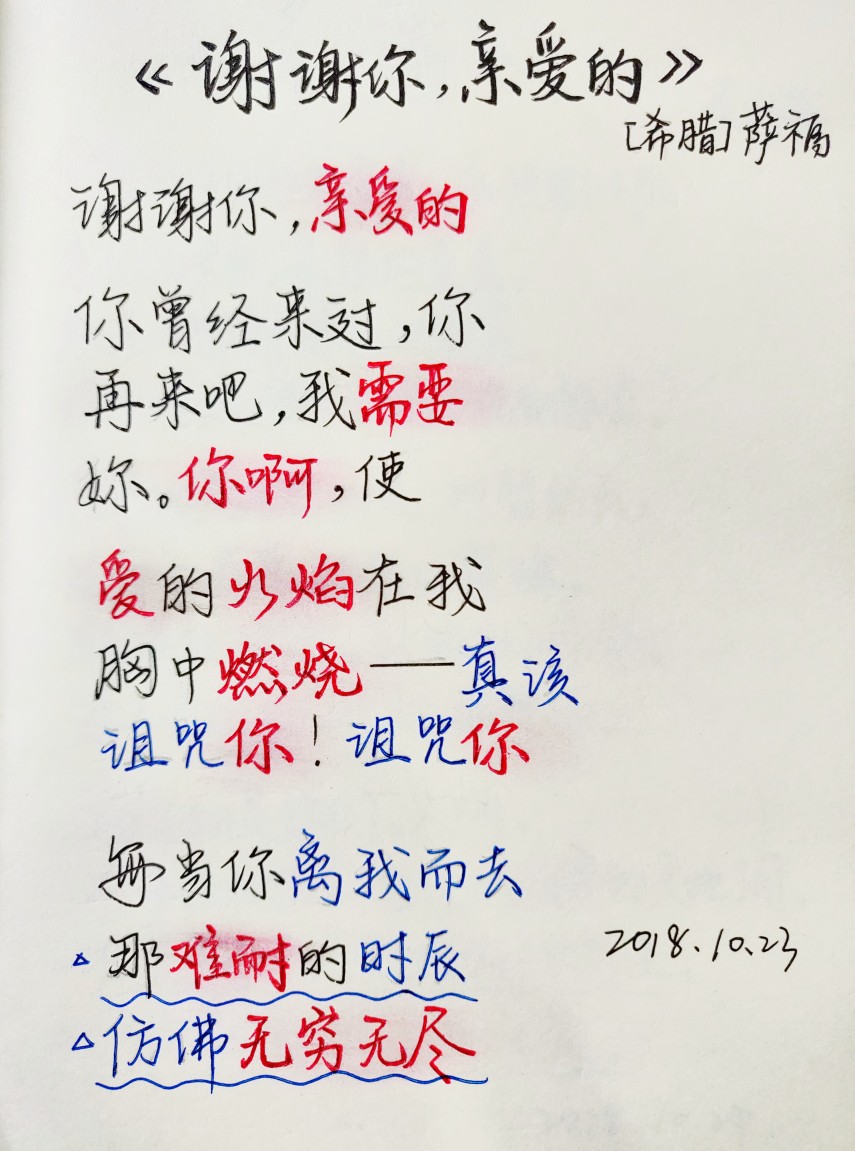 《谢谢你,亲爱的》
[希腊]萨福
谢谢你,亲爱的
你曾经来过,你
再来吧,我需要
妳。你啊,使
爱的火焰在我
胸中燃烧——真该
诅咒你!诅咒你
每当你离我而去
那难耐的时辰
2018.10.23
仿佛无穷无尽